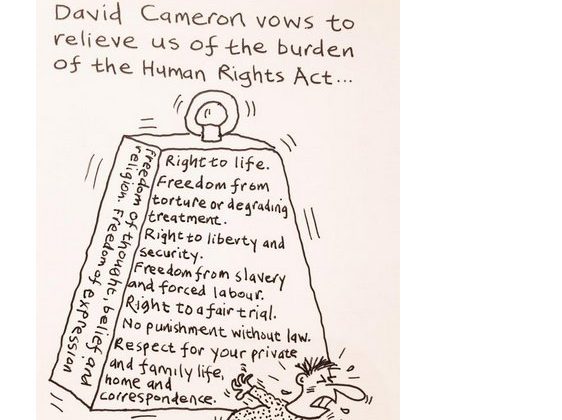 David Cameron vows to
relieve us of the burden
of the Human Rights Act...
Freedom of thought, belief and
religion. Freedom of expression
Right to life.
Freedom from
torture or degrading
treatment.
Right to liberty and
security.
Freedom from slavery
and forced labour.
Right to a fair trial.
No punishment without law.
Respect for your private
and family life,
home and
correspondence.